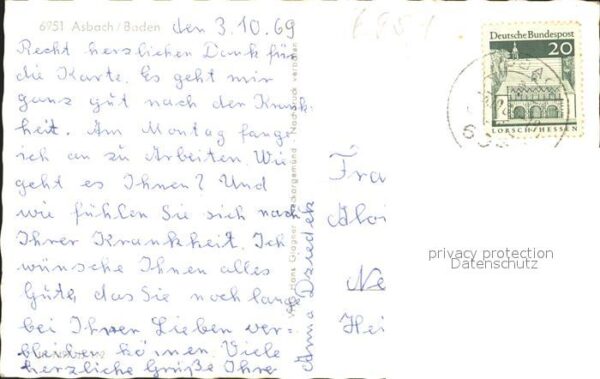 6951 Asbach / Baden den 3.10.69
Recht herzlichen Dank für
die Karte. Es geht mir
ganz gut nach der Krank-
heit. Am Montag fange
ich an zu Arbeiten. Wie
geht es Ihnen? Und
wie fühlen Sie sich nach
Ihrer Krankheit. Ich
wünsche Ihnen alles
Gute, das Sie noch lande
bei Ihren Lieben ver=
bleiben können. Viele
herzliche Grüße Ihre
Anna Dziedek
Hans Grögner Neckargemünd Nachdruck verboten
Deutsche Bundespost
20
LORSCH/HESSEN
Fra
Aloi
Ne
Hei
privacy protection
Datenschutz